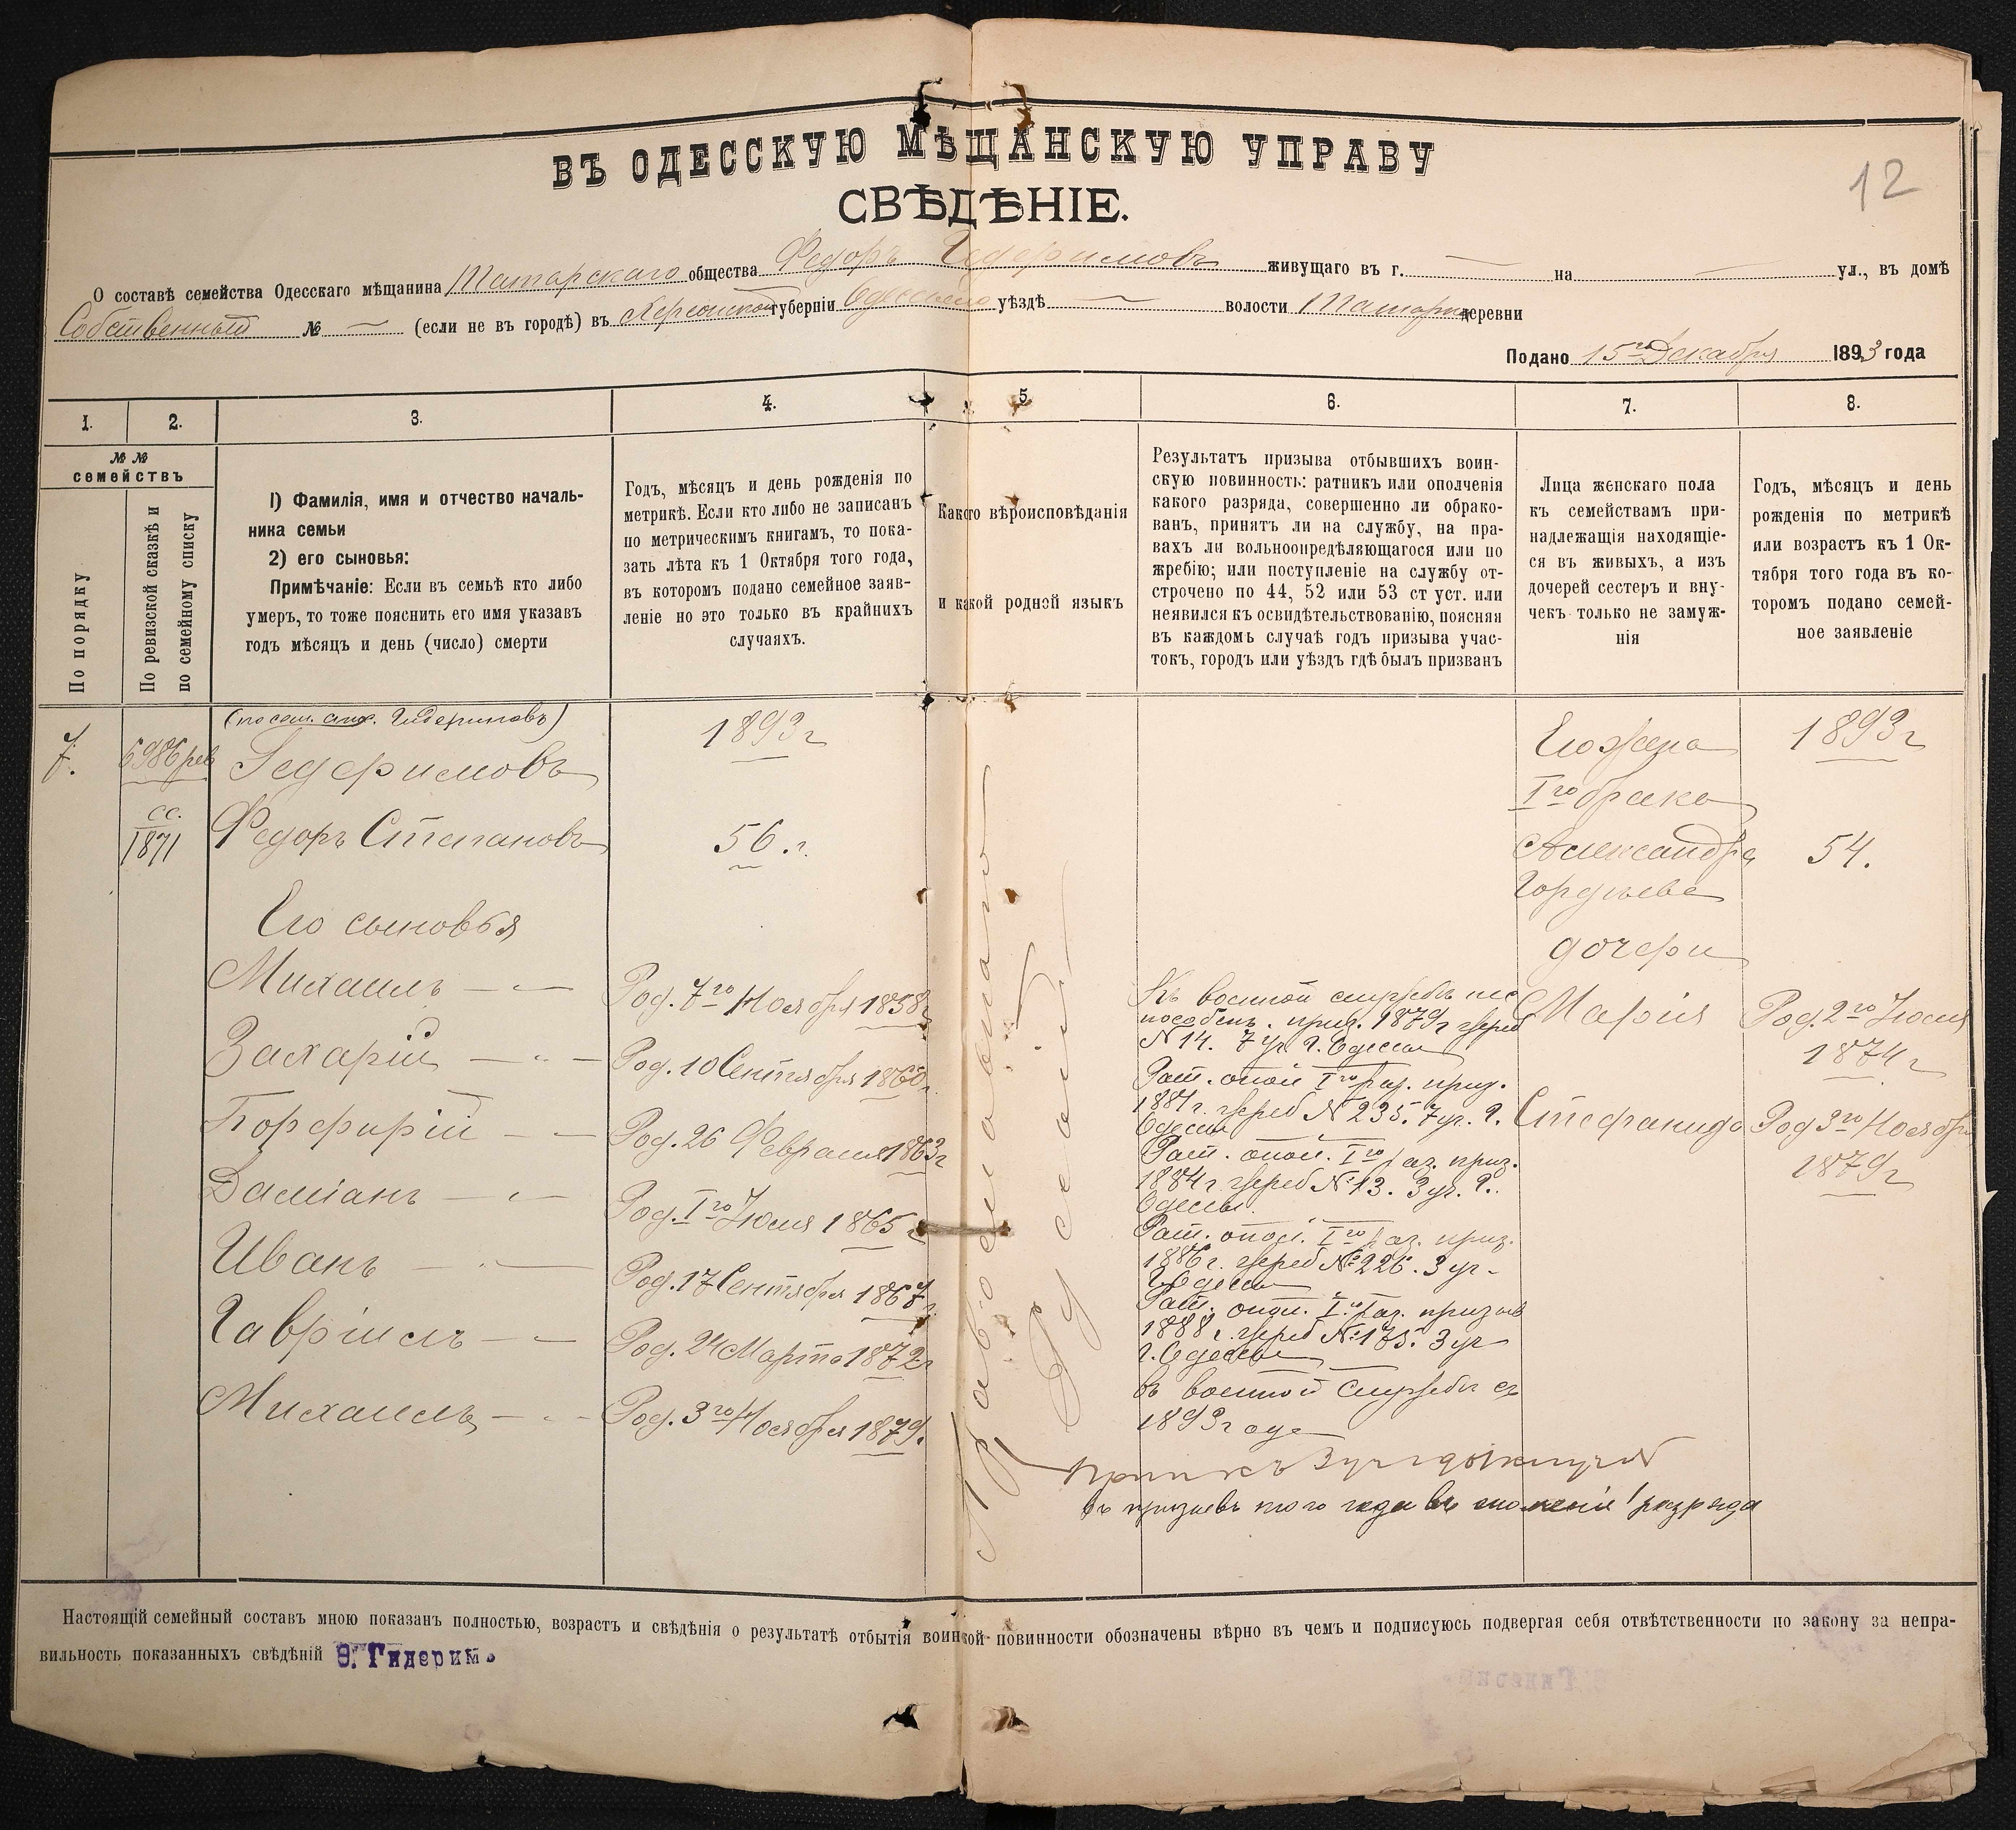 12
ВЪ ОДЕССКУЮ МѢЩАНСКУЮ УПРАВУ
СВѢДѢНІЕ.
О составѣ семейства Одесскаго мѣщанина Татарскаго общества Федоръ Гедеримовъ живущаго въ г. — на — ул., въ домѣ
Собственный № — (если не въ городѣ) въ Херсонской губерніи Одесскаго уѣздѣ — волости Татарка деревни
Подано 15го Декабря 1893 года
1.
2.
3.
4.
5.
6.
7.
8.
№ №
семействъ
По порядку
По ревизской сказкѣ и
по семейному списку
1) Фамилія, имя и отчество началь-
ника семьи
2) его сыновья:
Примѣчаніе: Если въ семьѣ кто либо
умеръ, то тоже пояснить его имя указавъ
годъ мѣсяцъ и день (число) смерти
Годъ, мѣсяцъ и день рожденія по
метрикѣ. Если кто либо не записанъ
по метрическимъ книгамъ, то пока-
зать лѣта къ 1 Октября того года,
въ которомъ подано семейное заяв-
леніе но это только въ крайнихъ
случаяхъ.
Какого вѣроисповѣданія
и какой родной языкъ
Результатъ призыва отбывшихъ воин-
скую повинность: ратникъ или ополченія
какого разряда, совершенно ли обрако-
ванъ, принятъ ли на службу, на пра-
вахъ ли вольноопредѣляющагося или по
жребію; или поступленіе на службу от-
строчено по 44, 52 или 53 ст уст. или
неявился къ освидѣтельствованію, поясняя
въ каждомъ случаѣ годъ призыва учас-
токъ, городъ или уѣздъ гдѣ былъ призванъ
Лица женскаго пола
къ семействамъ при-
надлежащія находящіе-
ся въ живыхъ, а изъ
дочерей сестеръ и вну-
чекъ только не замуж-
нія
Годъ, мѣсяцъ и день
рожденія по метрикѣ
или возрастъ къ 1 Ок-
тября того года въ ко-
торомъ подано семей-
ное заявленіе
7.
6986 рев
сс.
1871
(по сем. спис. Гидеримовъ)
Гедеримовъ
Федоръ Степановъ
Его сыновья
Михаилъ — " —
Захарій — " —
Порфирій — " —
Даміанъ — " —
Иванъ — " —
Гавріилъ — " —
Михаилъ — " —
1893 г
56 . г.
Род. 7го Ноября 1858 г
Род. 10 Сентября 1860 г.
Род. 26 Февраля 1863 г
Род. Iго Іюля 1865 г
Род. 17 Сентября 1867 г.
Род. 24 Марта 1872 г
Род. 3го Ноября 1879.
Православнаго
Русскій
Къ военной службѣ не
способенъ. приз. 1879 г жреб
№ 14. 7 уч. г. Одессы
Рат. опол Iго раз. приз.
1881 г. жреб № 235. 7 уч. г.
Одессы
Рат. опол. Iго раз. приз.
1884 г. жреб № 13. 3 уч. г.
Одессы.
Рат. опол. Iго раз. приз.
1886 г. жреб № 226. 3 уч.
г. Одессы
Рат. опол. Iго раз. призыв
1888 г. жреб № 175. 3 уч
г. Одессы
въ военной службѣ съ
1893 года
въ призывъ того года въ ополченіе 1 разряда
Его жена
Iго брака
Александра
Гордѣева
дочери
Марія
Стефанида
1893 г
54.
Род. 2го Іюля
1874 г
Род 3го Ноября
1879 г
Настоящій семейный составъ мною показанъ полностью, возрастъ и свѣдѣнія о результатѣ отбытія воинской повинности обозначены вѣрно въ чемъ и подписуюсь подвергая себя отвѣтственности по закону за непра-
вильность показанныхъ свѣдѣній Ѳ. Гидеримъ